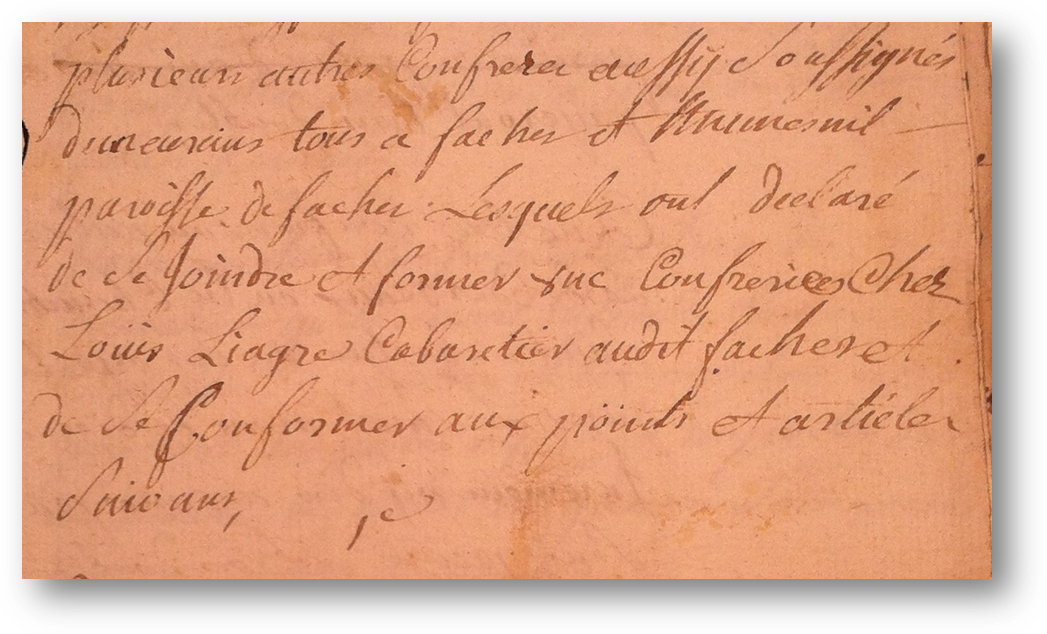 plusieurs autres Confrerer aussÿ Soussignés
demeurans tous a facher et
paroisse de facher Lesquels ont declaré
de Se Joindre et former une Confreries Chez
Louis Liagre Cabaretier audit facheret
de Se Conformer aux points et articler
Suivans,